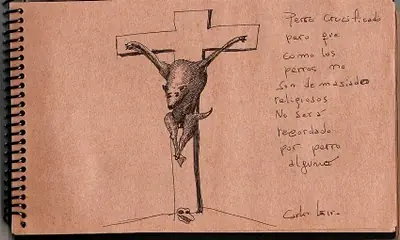 Perro crucificado
pero que
como los
perros no
son demasiado
religiosos
No será
recordado
por perro
alguno
Carlos